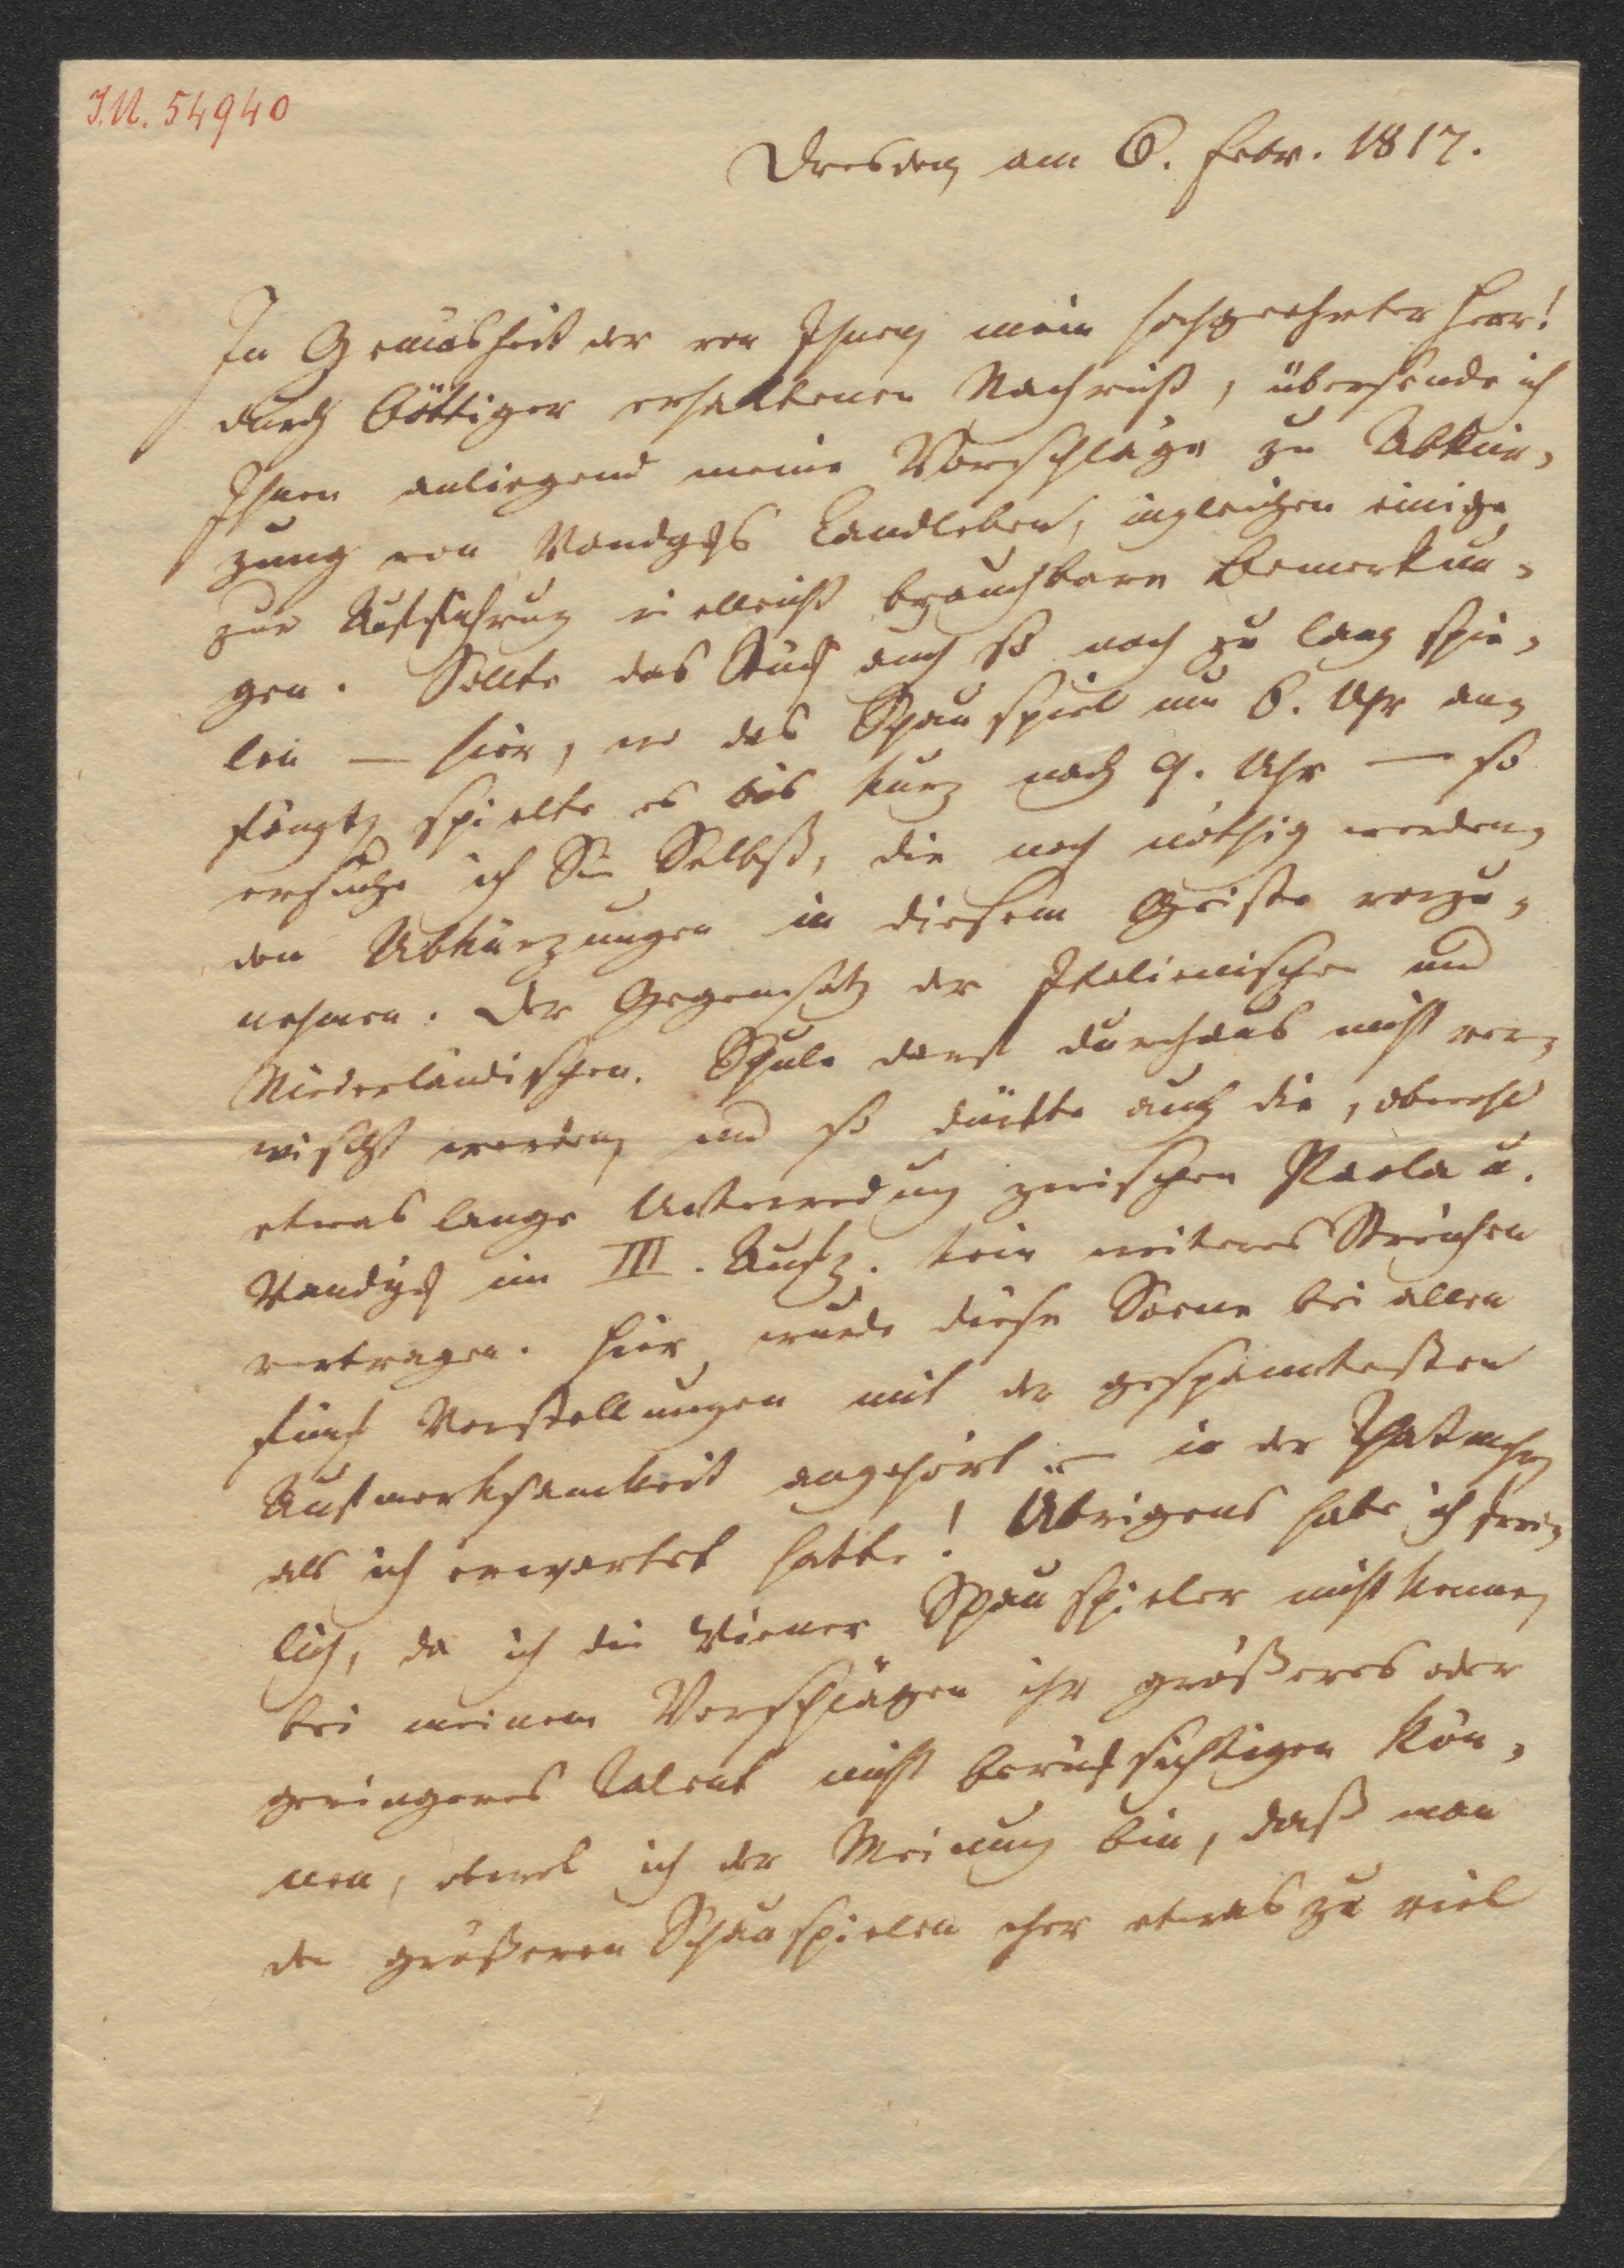 I.N. 54940
Dresden am 6. Febr. 1817.
In Gemäsheit der von Ihnen mein hochgeehrter Herr!
durch Böttiger erhaltenen Nachricht, übersende ich
Ihnen anliegend meine Vorschläge zu Abkür-
zung von Vandyks Landleben, ingleichen einige
zur Aufführung vielleicht brauchbare Bemerkun-
gen. Sollte das Stück auch so noch zu lang spie-
len — hier, wo das Schauspiel um 6. Uhr an-
fängt, spielte es bis kurz nach 9. Uhr — so
ersuche ich Sie Selbst, die noch nöthig werden-
den Abkürzungen in diesem Geiste vorzu-
nehmen. Der Gegensatz der Italienischen und
Niederländischen Schule darf durchaus nicht ver-
wischt werden, und so dürfte auch die, obwohl
etwas lange Unterredung zwischen Paola u.
Vandyk im III. Aufz. kein weiteres Streichen
vertragen. Hier wurde diese Scene bei allen
fünf Vorstellungen mit der gespanntesten
Aufmerksamkeit angehört — in der That mehr,
als ich erwartet hatte! Übrigens habe ich frei-
lich, da ich die Wiener Schauspieler nicht kenne,
bei meinen Vorschlägen ihr größeres oder
geringeres Talent nicht berücksichtigen kön-
nen, obwol ich der Meinung bin, daß man
den größeren Schauspielen eher etwas zu viel